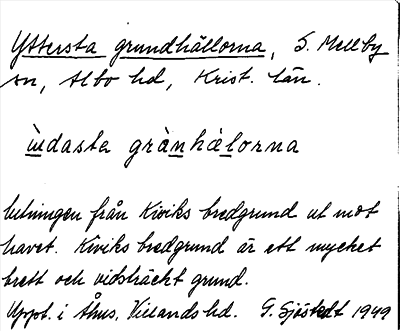 Yttersta grundhällorna, S. Mellby
sn, Albo hd, Krist. län.
ùdasta grànhàlorna
lutningen från Kiviks bredgrund ut mot
havet. Kiviks bredgrund är ett mycket
brett och vidsträckt grund.
Uppt. i Åhus, Villands hd. G. Sjöstedt 1949